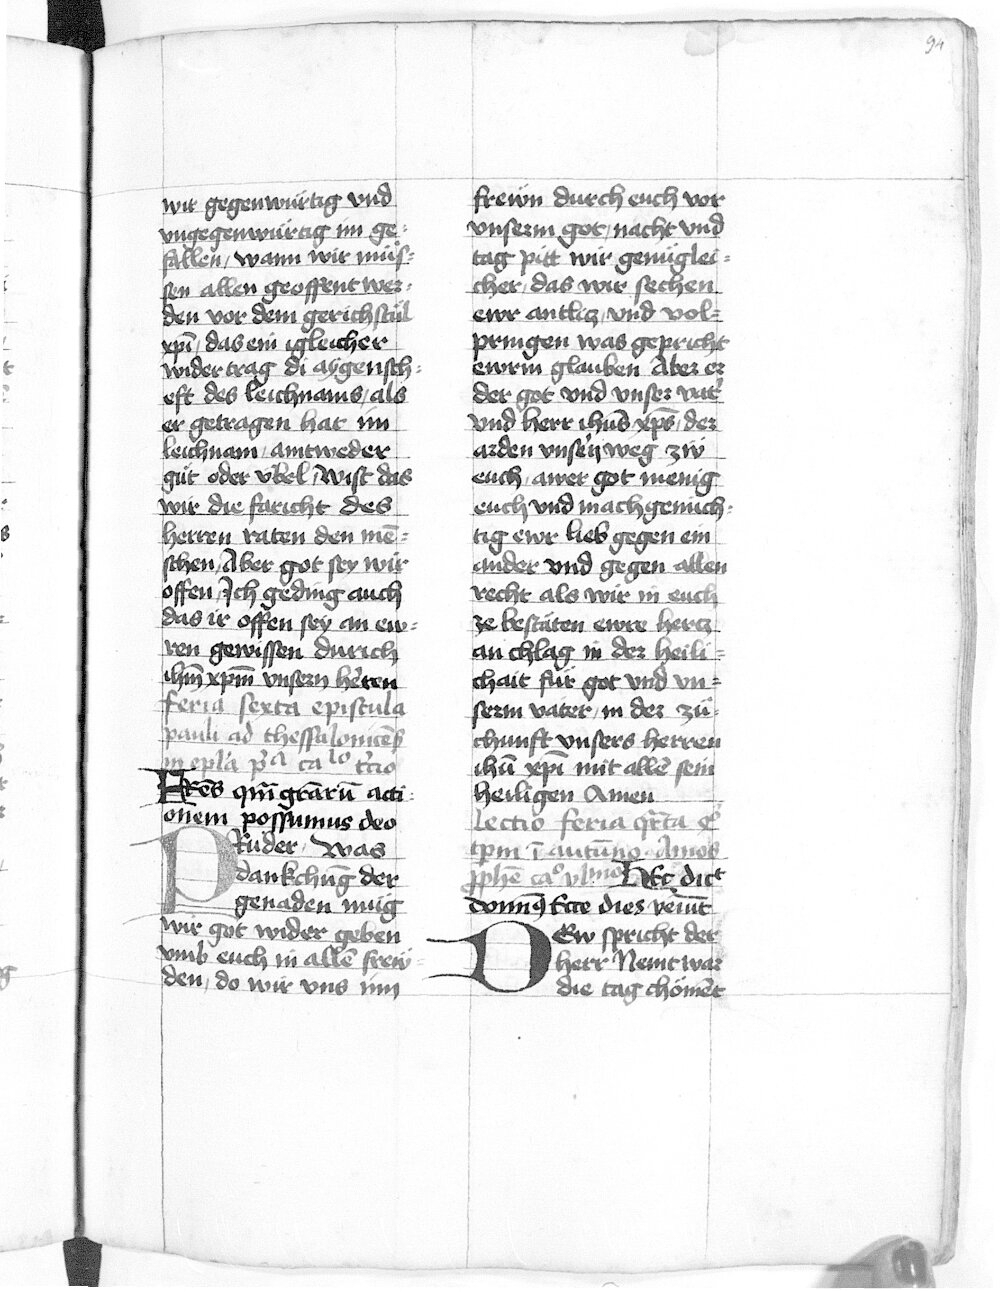 94
wir gegenwürtig vnd
vngegenwürtig im ge-
fallen, wann wir müs-
sen allen geoffent wer-
den vor dem gerichstül
xp̄i, das ein igleicher
wider trag di aygensch-
eft des leichnams, als
er getragen hat im
leichnam, aintweder
güt oder vbel, Wist das
wir die faricht des
herren raten den mē-
schen, Aber got sey wir
offen, Ich geding auch
das ir offen sey an ew-
ren gewissen durich
ihm̄ xpm̄ vnsern hr̄ren
feria sexta epistula
pauli ad thessalonicēs
in epl̄a p̄a ca lo t̄cio
Frēs qm̄ gr̄arū acti-
onem possumus deo
PRuder, Was
dankchūg der
genaden müg
wir got wider geben
vmb euch in allē frew-
den, do wir vns inn
frewn durch euch vor
vnserm got, nacht vnd
tag pitt wir genüglei-
cher, das wir sechen
ewr antlicz, vnd vol-
pringen was gepricht
ewrm glauben Aber er
der got vnd vnser vat̄
vnd herr ihūs xp̄s, der
arden vnsēn weg zw
euch, awer got menig
euch vnd mach genüch-
tig ewr lieb gegen ein
ander vnd gegen allen
recht als wir in euch
ze bestäten ewre hercz
an chlag in der heili-
chait für got vnd vn-
serm vater, in der zů-
chunft vnsers herren
ihū xp̄i mit allē sein
heiligen Amen
lectio feria qr̄ta q̄
tpm ī autūno Amos
p̄phē ca⁰ vlmo HEc dict
domin9 Ecce dies veīut
DEw spricht der
herr Nemt war
die tag chömēt